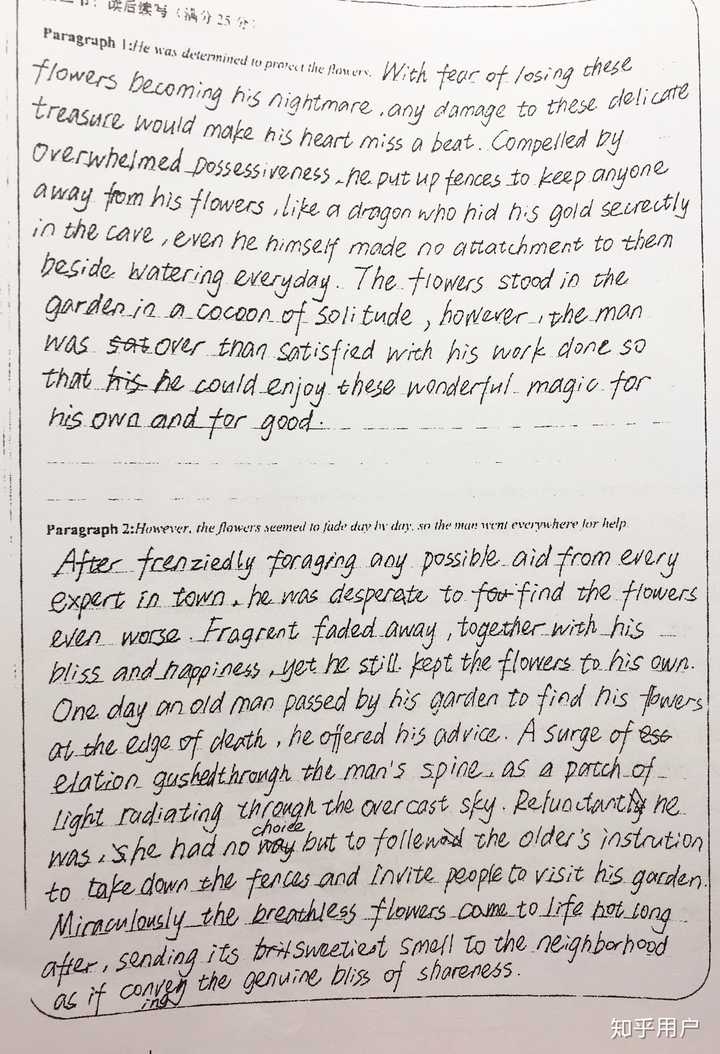 读后续写（满分25分）
Paragraph 1:He was determined to protect the flowers. With fear of losing these
flowers becoming his nightmare, any damage to these delicate
treasure would make his heart miss a beat. Compelled by
overwhelmed possessiveness, he put up fences to keep anyone
away from his flowers, like a dragon who hid his gold secrectly
in the cave, even he himself made no attatchment to them
beside watering everyday. The flowers stood in the
garden in a cocoon of solitude, however, the man
was sat over than satisfied with his work done so
that his he could enjoy these wonderful magic for
his own and for good.
Paragraph 2:However, the flowers seemed to fade day by day, so the man went everywhere for help.
After frenziedly foraging any possible aid from every
expert in town, he was desperate to fou find the flowers
even worse. Fragrent faded away, together with his
bliss and happiness, yet he still kept the flowers to his own.
One day an old man passed by his garden to find his flowers
at the edge of death, he offered his advice. A surge of esc
elation gushed through the man's spine, as a patch of
light radiating through the overcast sky. Relunctantly he
choice
was, he had no way but to follow the older's instrution
to take down the fences and invite people to visit his garden.
Miraculously the breathless flowers came to life not long
after, sending its sweetiest smell to the neighborhood
as if conveying the genuine bliss of shareness.
知乎用户